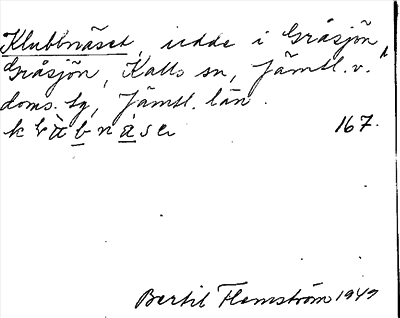 Klubbnäset, udde i Gråsjön,
Gråsjön, Kalls sn, Jämtl. v.
doms. tg, Jämtl. län.
167.
Bertil Flemström 1947